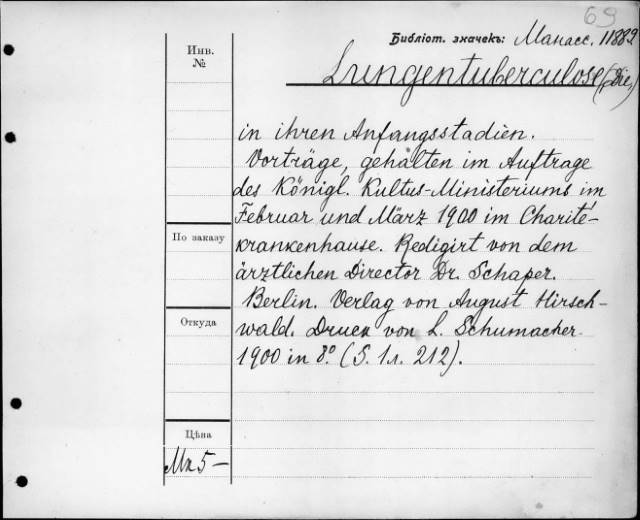 69
Библіот. значекъ: Манасс. 11889
Инв.
№
Lungentuberculose (Die)
in ihren Anfangsstadien.
Vorträge, gehalten im Auftrage
des Königl. Kultus-Ministeriums im
Februar und März 1900 im Charité-
krankenhause. Redigirt von dem
ärztlichen Director Dr. Schaper.
Berlin. Verlag von August Hirsch-
wald. Druck von L. Schumacher.
1900 in 8º (S. 1л. 212).
По заказу
Откуда
Цѣна
Mk 5—